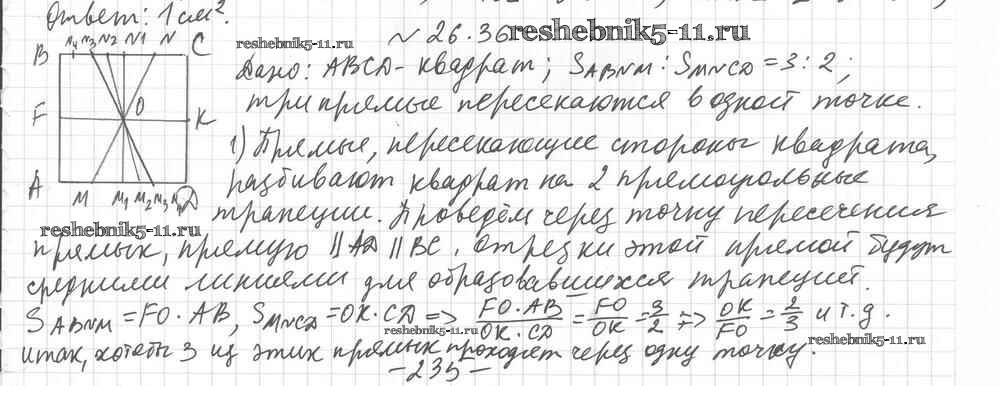 Ответ: 1 см².
№ 26.36 reshebnik5-11.ru
reshebnik5-11.ru
B N₄ N₃ N₂ N1 N C
Дано: ABCD - квадрат; SABNM : SMNCD = 3 : 2;
три прямые пересекаются в одной точке.
F O K
1) Прямые, пересекающие стороны квадрата,
разбивают квадрат на 2 прямоугольные
A M M₁ M₂ M₃ M₄ D
трапеции. Проведём через точку пересечения
reshebnik5-11.ru
прямых, прямую || AD || BC. Отрезки этой прямой будут
средними линиями для образовавшихся трапеций.
SABNM = FO · AB, SMNCD = OK · CD => FO · AB / OK · CD = FO / OK = 3 / 2 => OK / FO = 2 / 3 и т.д.
reshebnik5-11.ru
reshebnik5-11.ru
итак, хотя бы 3 из этих прямых проходят через одну точку.
- 235 -